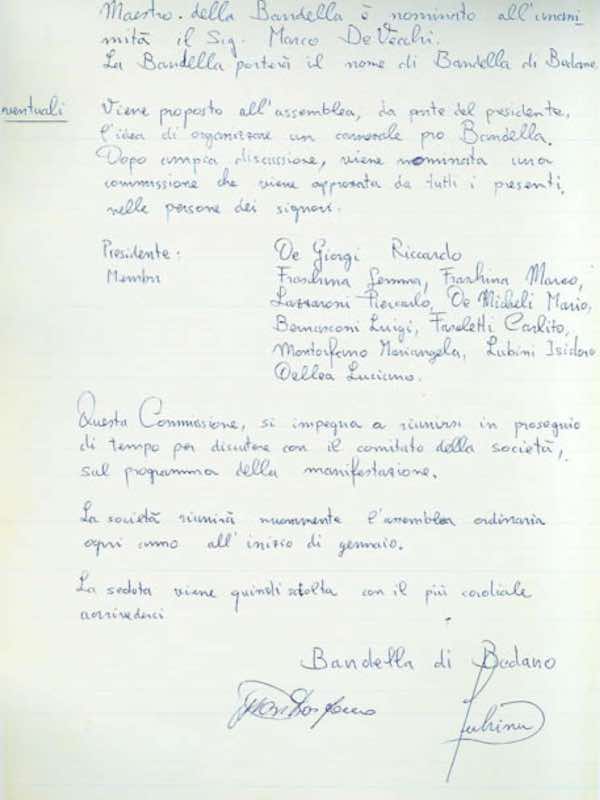 Maestro della Bandella è nominato all'unani
mità il Sig. Marco De Vecchi.
La Bandella porterà il nome di Bandella di Bedano.
eventuali Viene proposto all'assemblea, da parte del presidente,
l'idea di organizzare un carnevale pro Bandella.
Dopo ampia discussione, viene nominata una
commissione che viene approvata da tutti i presenti,
nelle persone dei signori.
Presidente: De Giorgi Riccardo
Membri Fraschina Gemma, Fraschina Marco,
Lazzaroni Piercarlo, De Micheli Mario,
Bernasconi Luigi, Faroletti Carlito,
Montorfano Mariangela, Lubini Isidoro
Dellea Luciano.
Questa Commissione, si impegna a riunirsi in proseguio
di tempo per discutere con il comitato della società,
sul programma della manifestazione.
La società riunirà nuovamente l'assemblea ordinaria
ogni anno all'inizio di gennaio.
La seduta viene quindi sciolta con il più cordiale
arrivederci
Bandella di Bedano
Montorfano Lubini